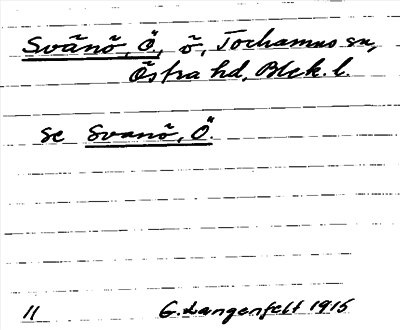 Svänö, Ö., ö, Torhamns sn,
Östra hd, Blek. l.
se Svanö, Ö.
11 G. Langenfelt 1915